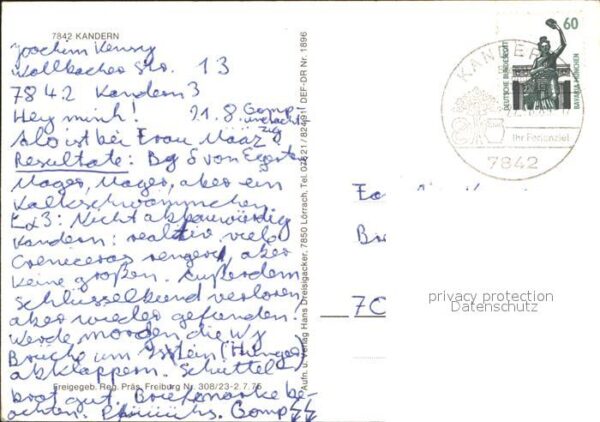 7842 KANDERN
Joachim
Wollbacher Str. 13
7842 Kandern 3
Hey minh! 21.8.
Also ist bei Frau
Resultate: Bg S von
Mager, Mager, aber ein
Kalkschwämmchen.
Ex3: Nicht abbauwürdig
Kandern: realtiv viele
Creniceras rengeri, aber
keine großen. Außerdem
Schlüsselbund verloren
aber wieder gefunden.
Werde morgen die
Brüche um Istein
abklappern. Schüttel
brot gut. Briefmarke be-
achten. Gomp
Freigegeb. Reg. Präs. Freiburg Nr. 308/23-2.7.75
Aufn. u. Verlag Hans Dreisigacker, 7850 Lörrach, Tel. 07621/82491 DEF-DR Nr. 1896
60
DEUTSCHE BUNDESPOST
BAVARIA MÜNCHEN
Ihr Ferienziel
7842
Br
privacy protection
Datenschutz